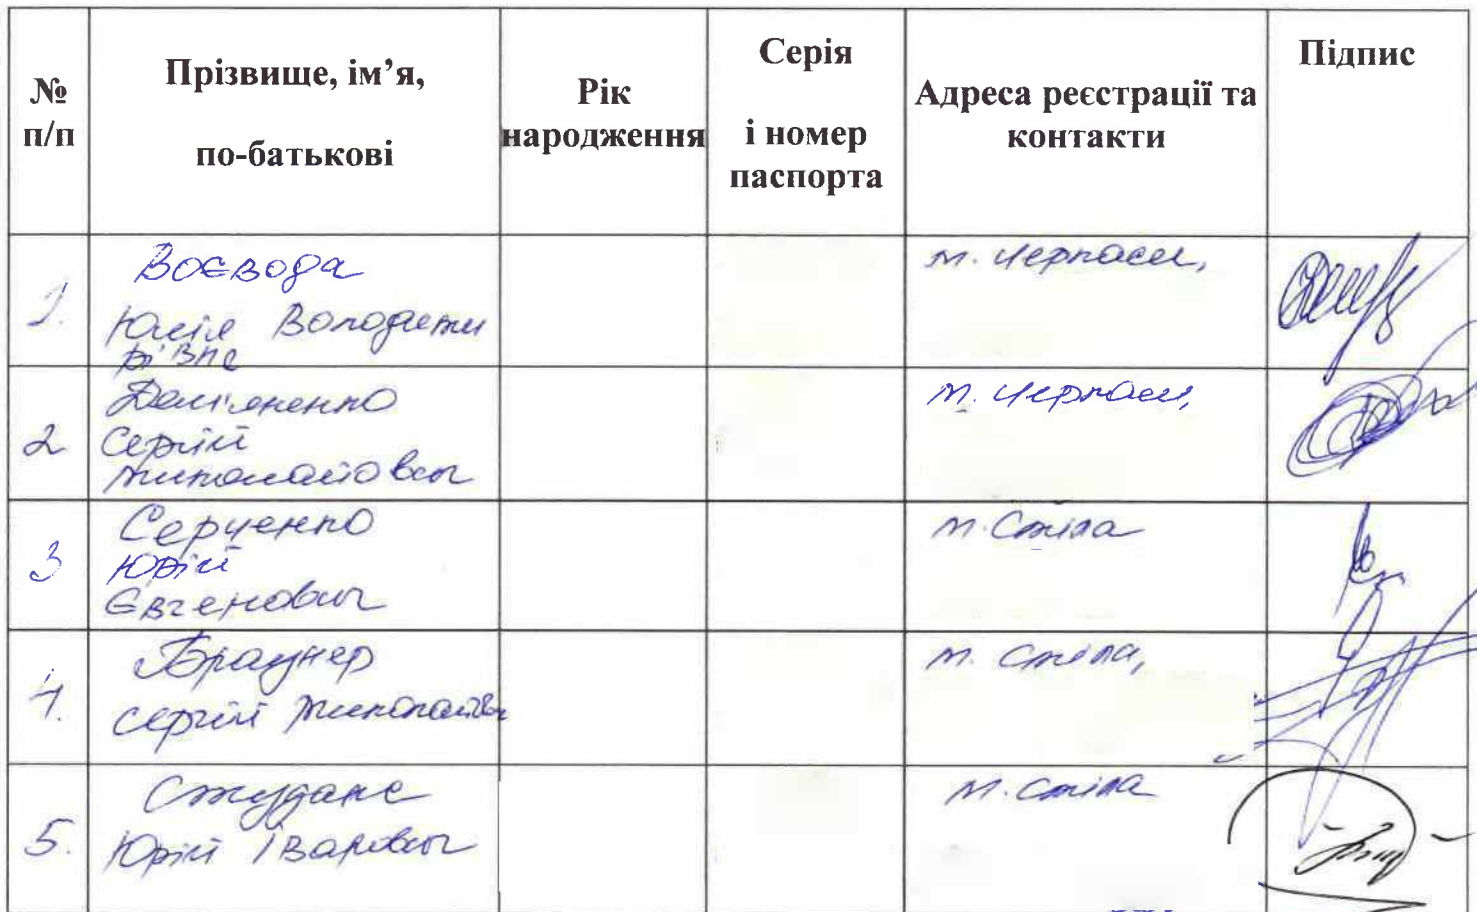 № п/п
Прізвище, ім’я,
по-батькові
Рік
народження
Серія
і номер
паспорта
Адреса реєстрації та
контакти
Підпис
1.
Воєвода
Юлія Володими
рівна
м. Черкаси,
2
Дем'яненко
Сергій
Миколайович
м. Черкаси,
3
Сергієнко
Юрій
Євгенович
м. Сміла
4.
Браунер
Сергій Миколайович
м. Сміла,
5.
Юрій
м. Сміла